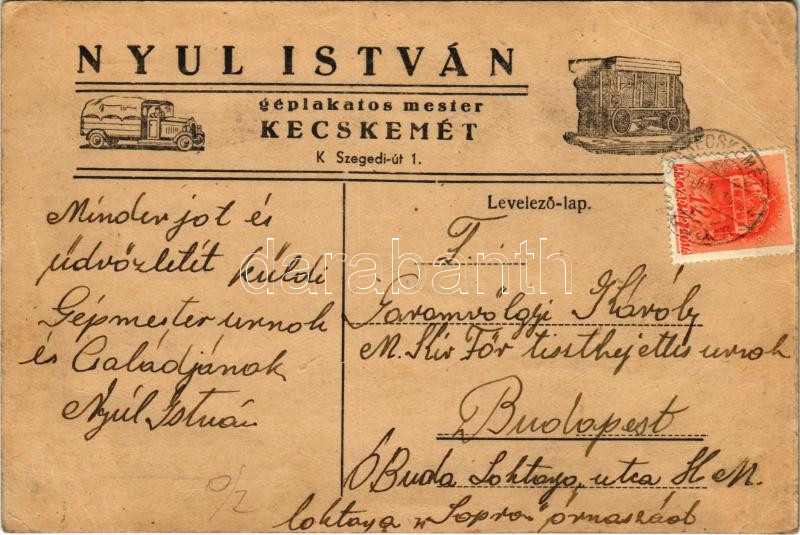 NYUL ISTVÁN
géplakatos mester
KECSKEMÉT
K Szegedi-út 1.
Levelező-lap.
Minden jot és
üdvözletét küldi
Gépmester urnak
és Családjának
Nyúl István
T.
Garamvölgyi Károly
M. Kir Főr tiszthejettes urnak
Budapest
Ó Buda utca
KECSKEMÉT
MAGYAR KIR. POSTA
darabanth